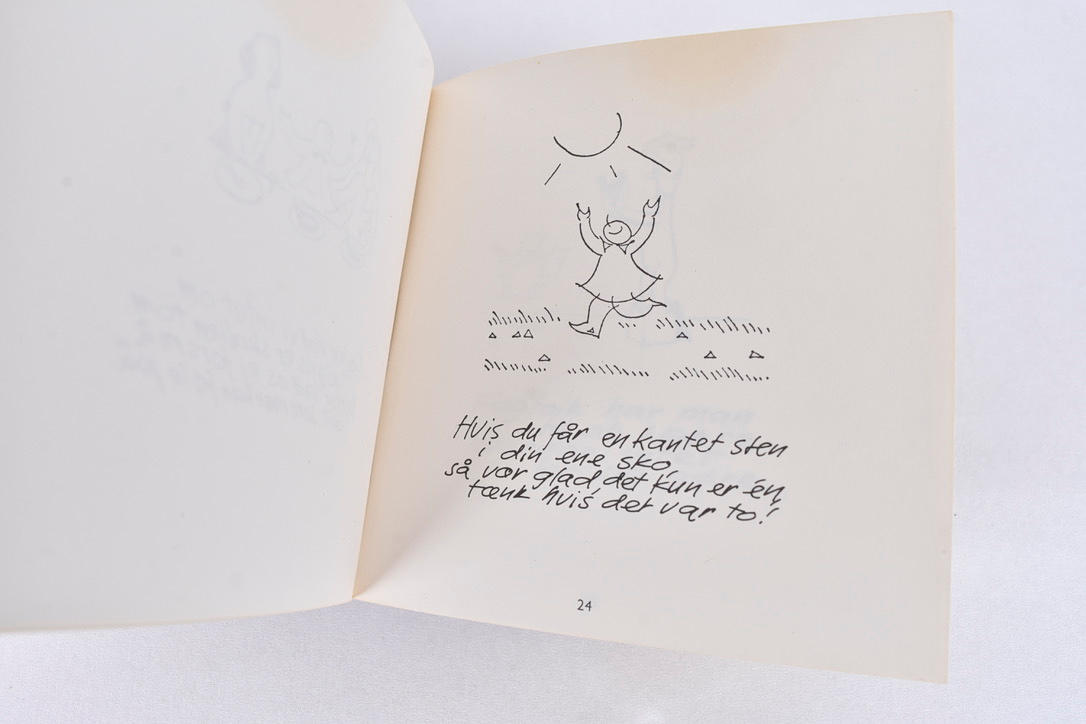 Hvis du får en kantet sten
i din ene sko,
så vær glad, det kun er én,
tænk hvis det var to!
24